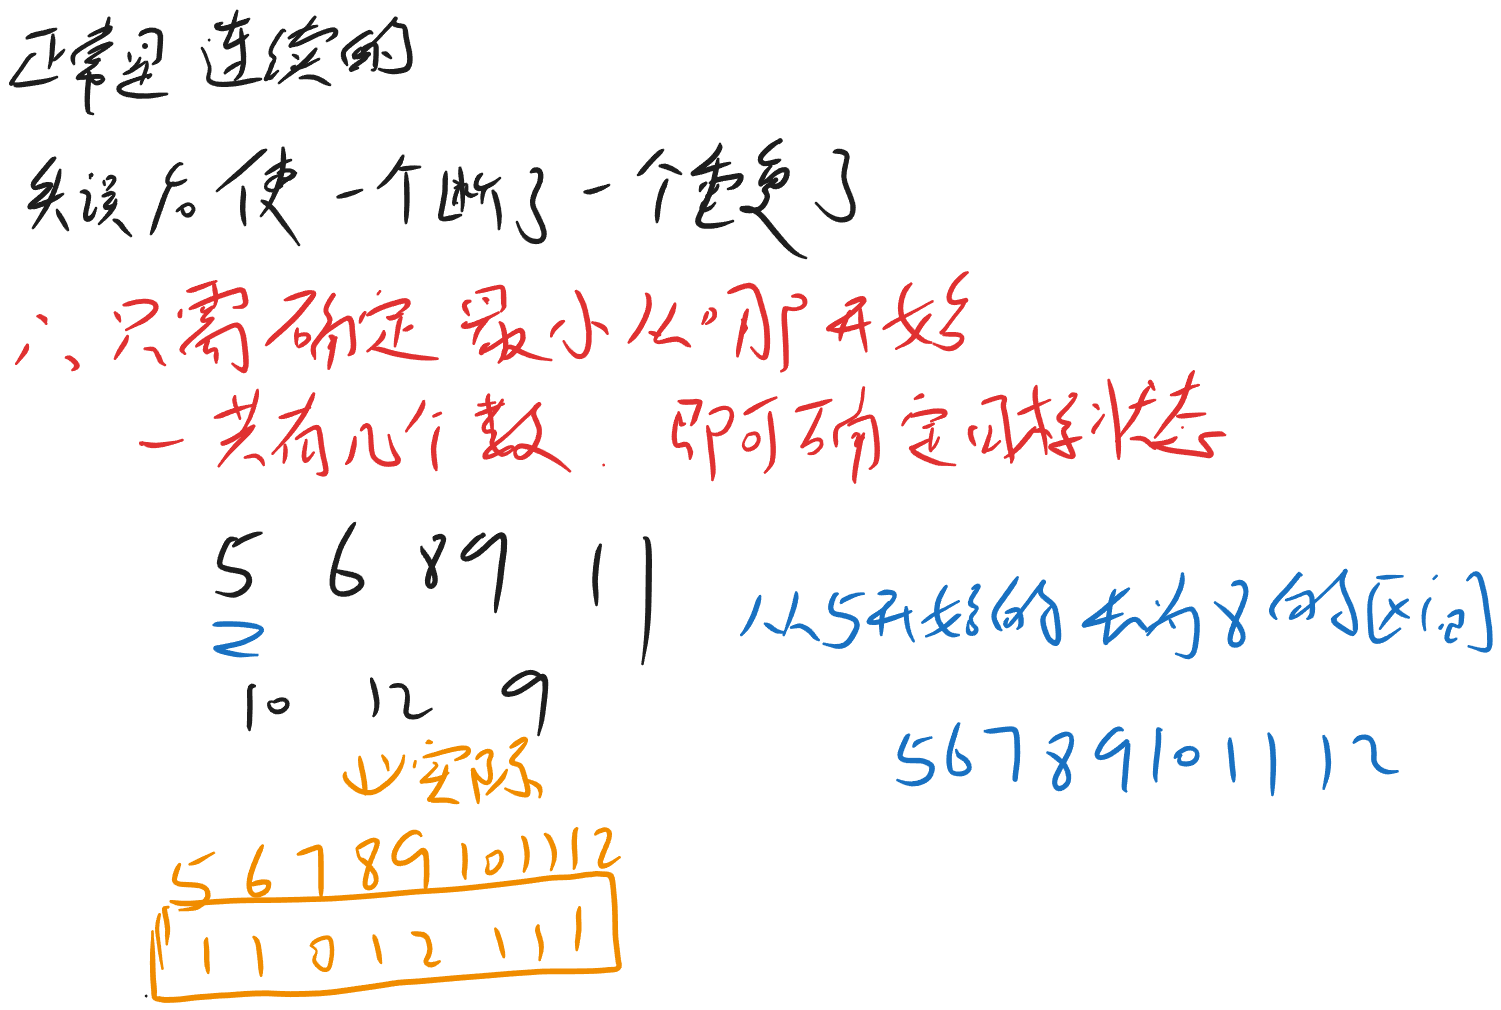 正常是连续的
失误后使一个断了一个重复了
∴只需确定最小从哪开始
一共有几个数.即可确定日志状态
5 6 8 9 11
2
从5开始的长为8的区间
10 12 9
5 6 7 8 9 10 11 12
↓实际
5 6 7 8 9 10 11 12
1 1 0 1 2 1 1 1